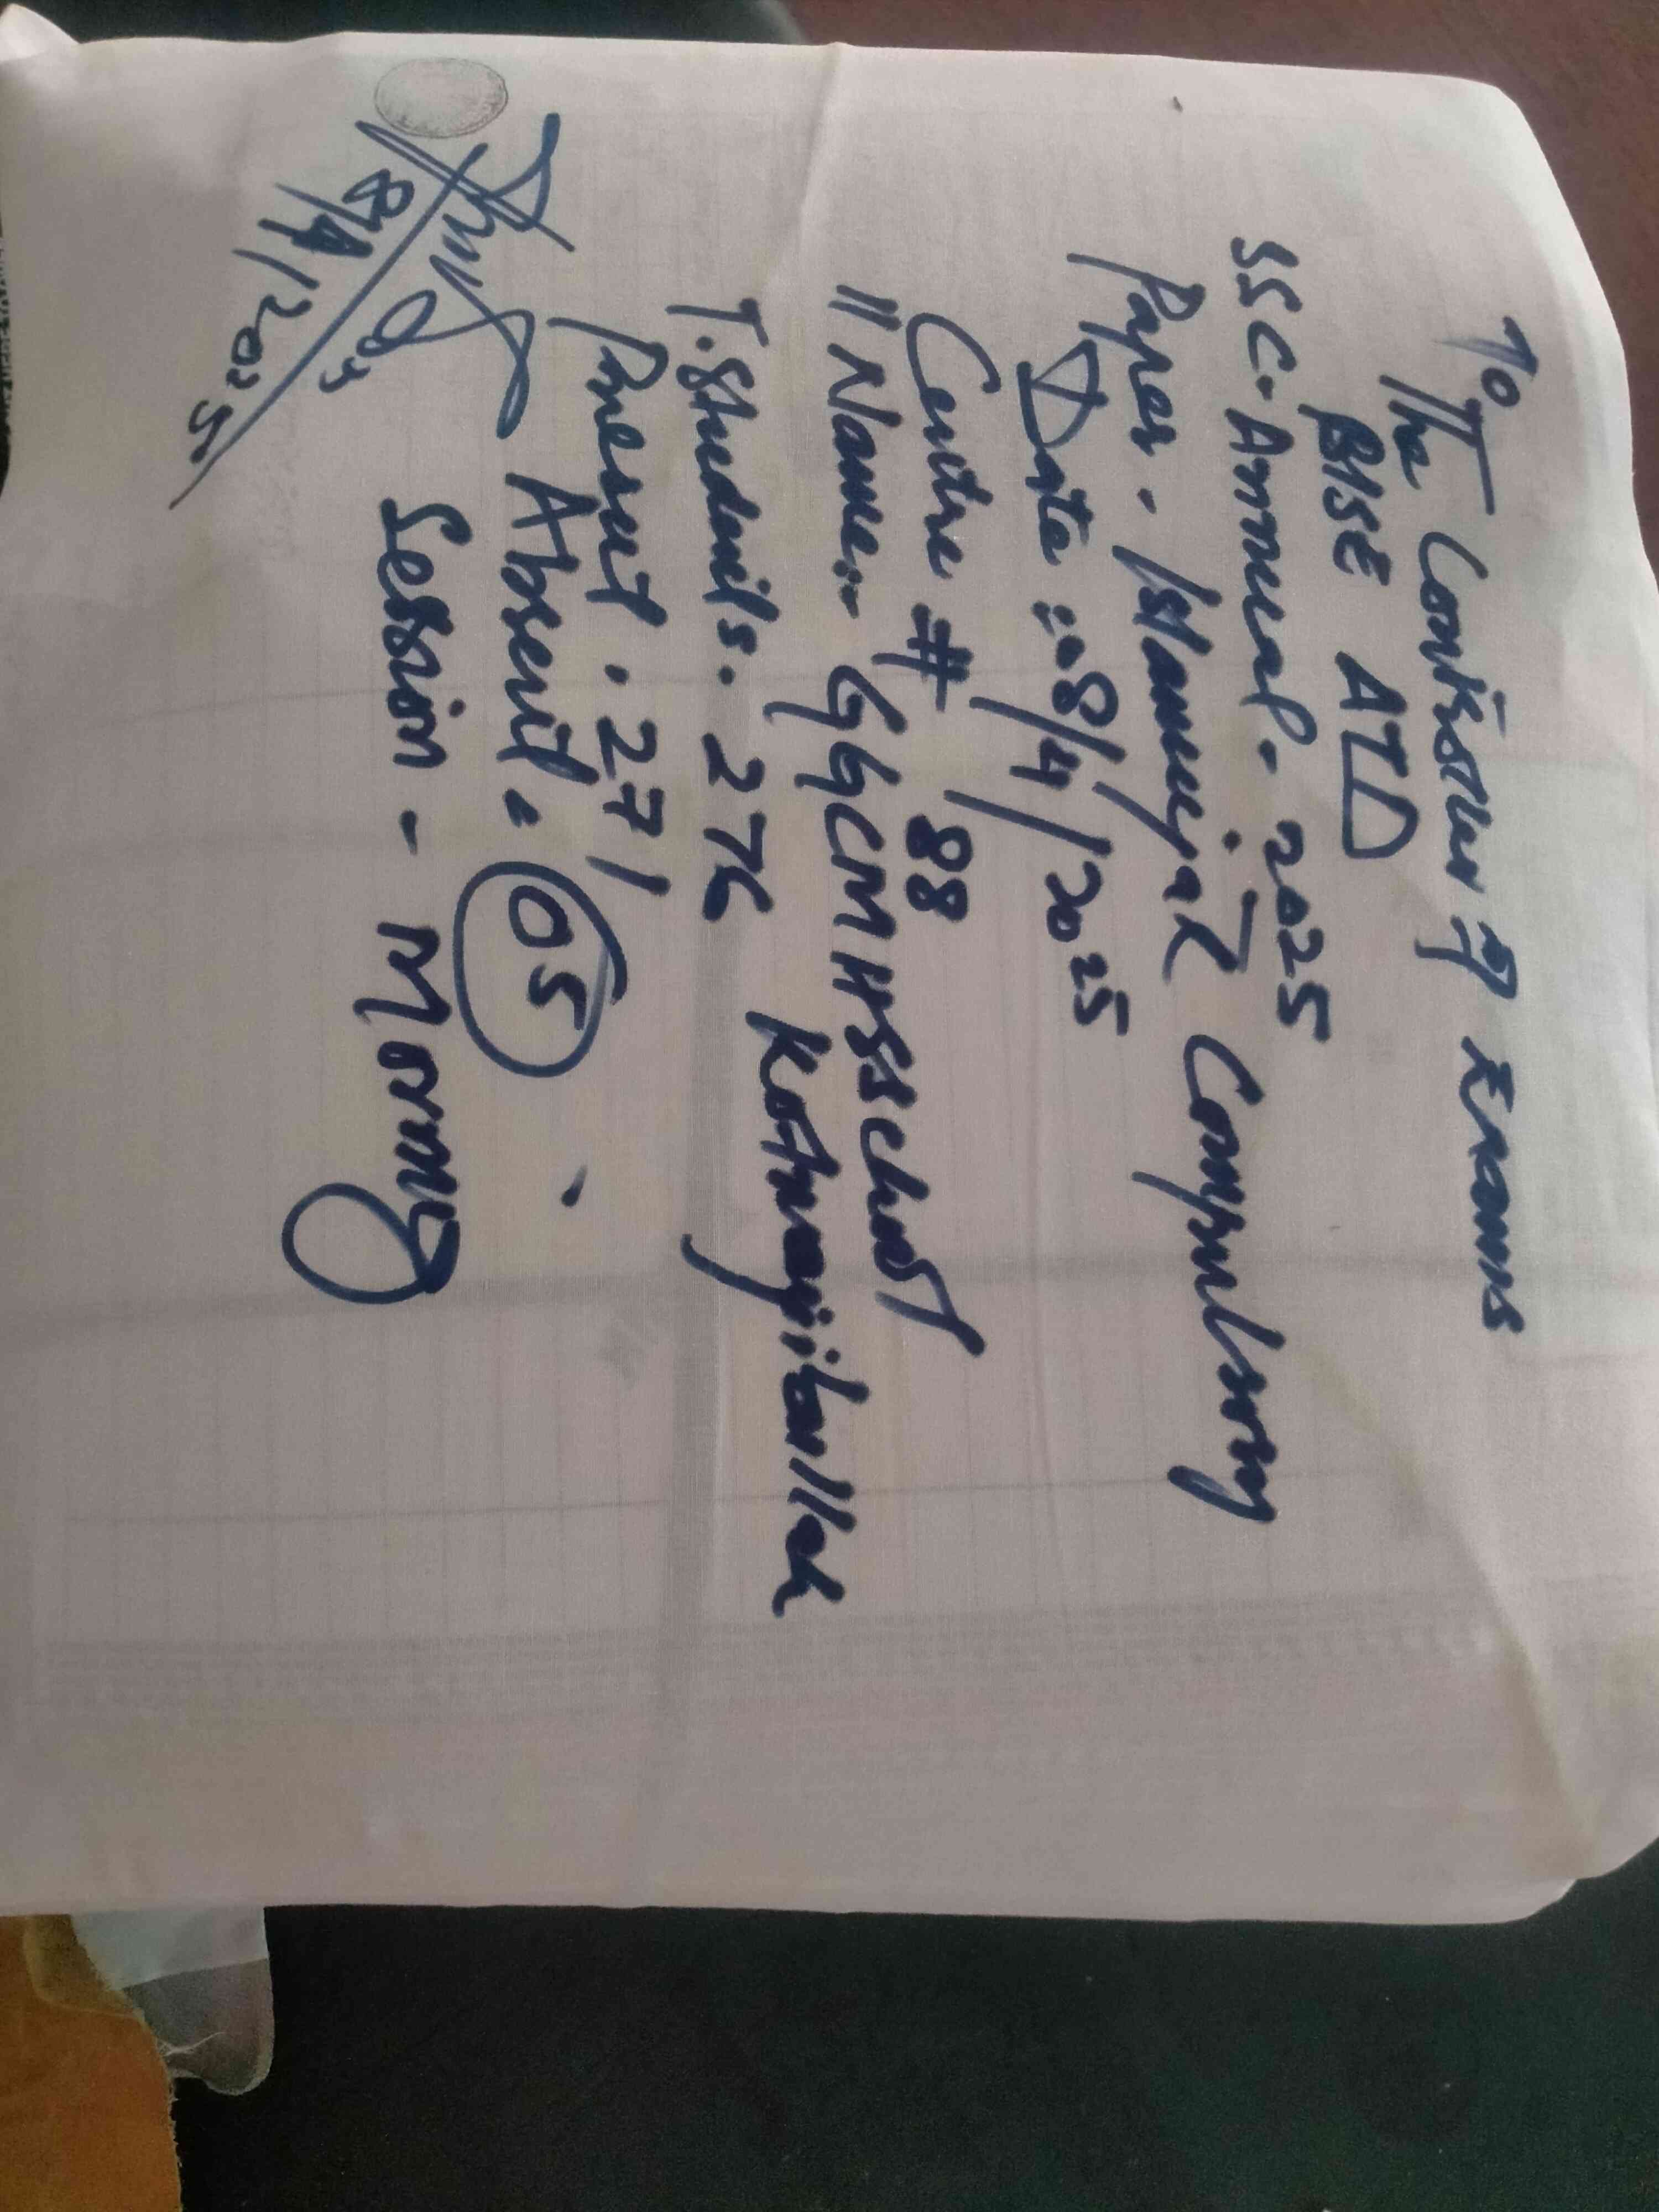 To
The Controller of Exams
BISE ATD
SSC. Annual - 2025
Paper - Islamiyat Compulsory
Date :- 8/4/2025
Centre # 88
" Name:- GGCMHSSchool
Kotnajibullah
T. Students. 276
Present. 271
Absent. 05
Session - Morning
8/4/2025